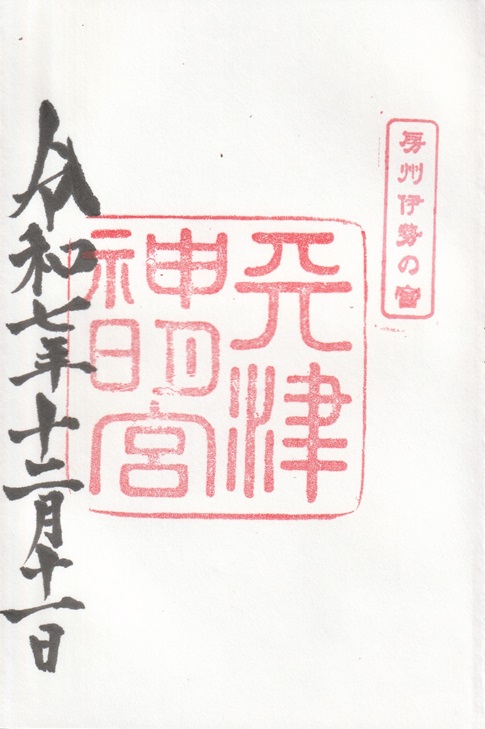 房州伊勢の宮
天津
神明宮
令和七年十二月十一日